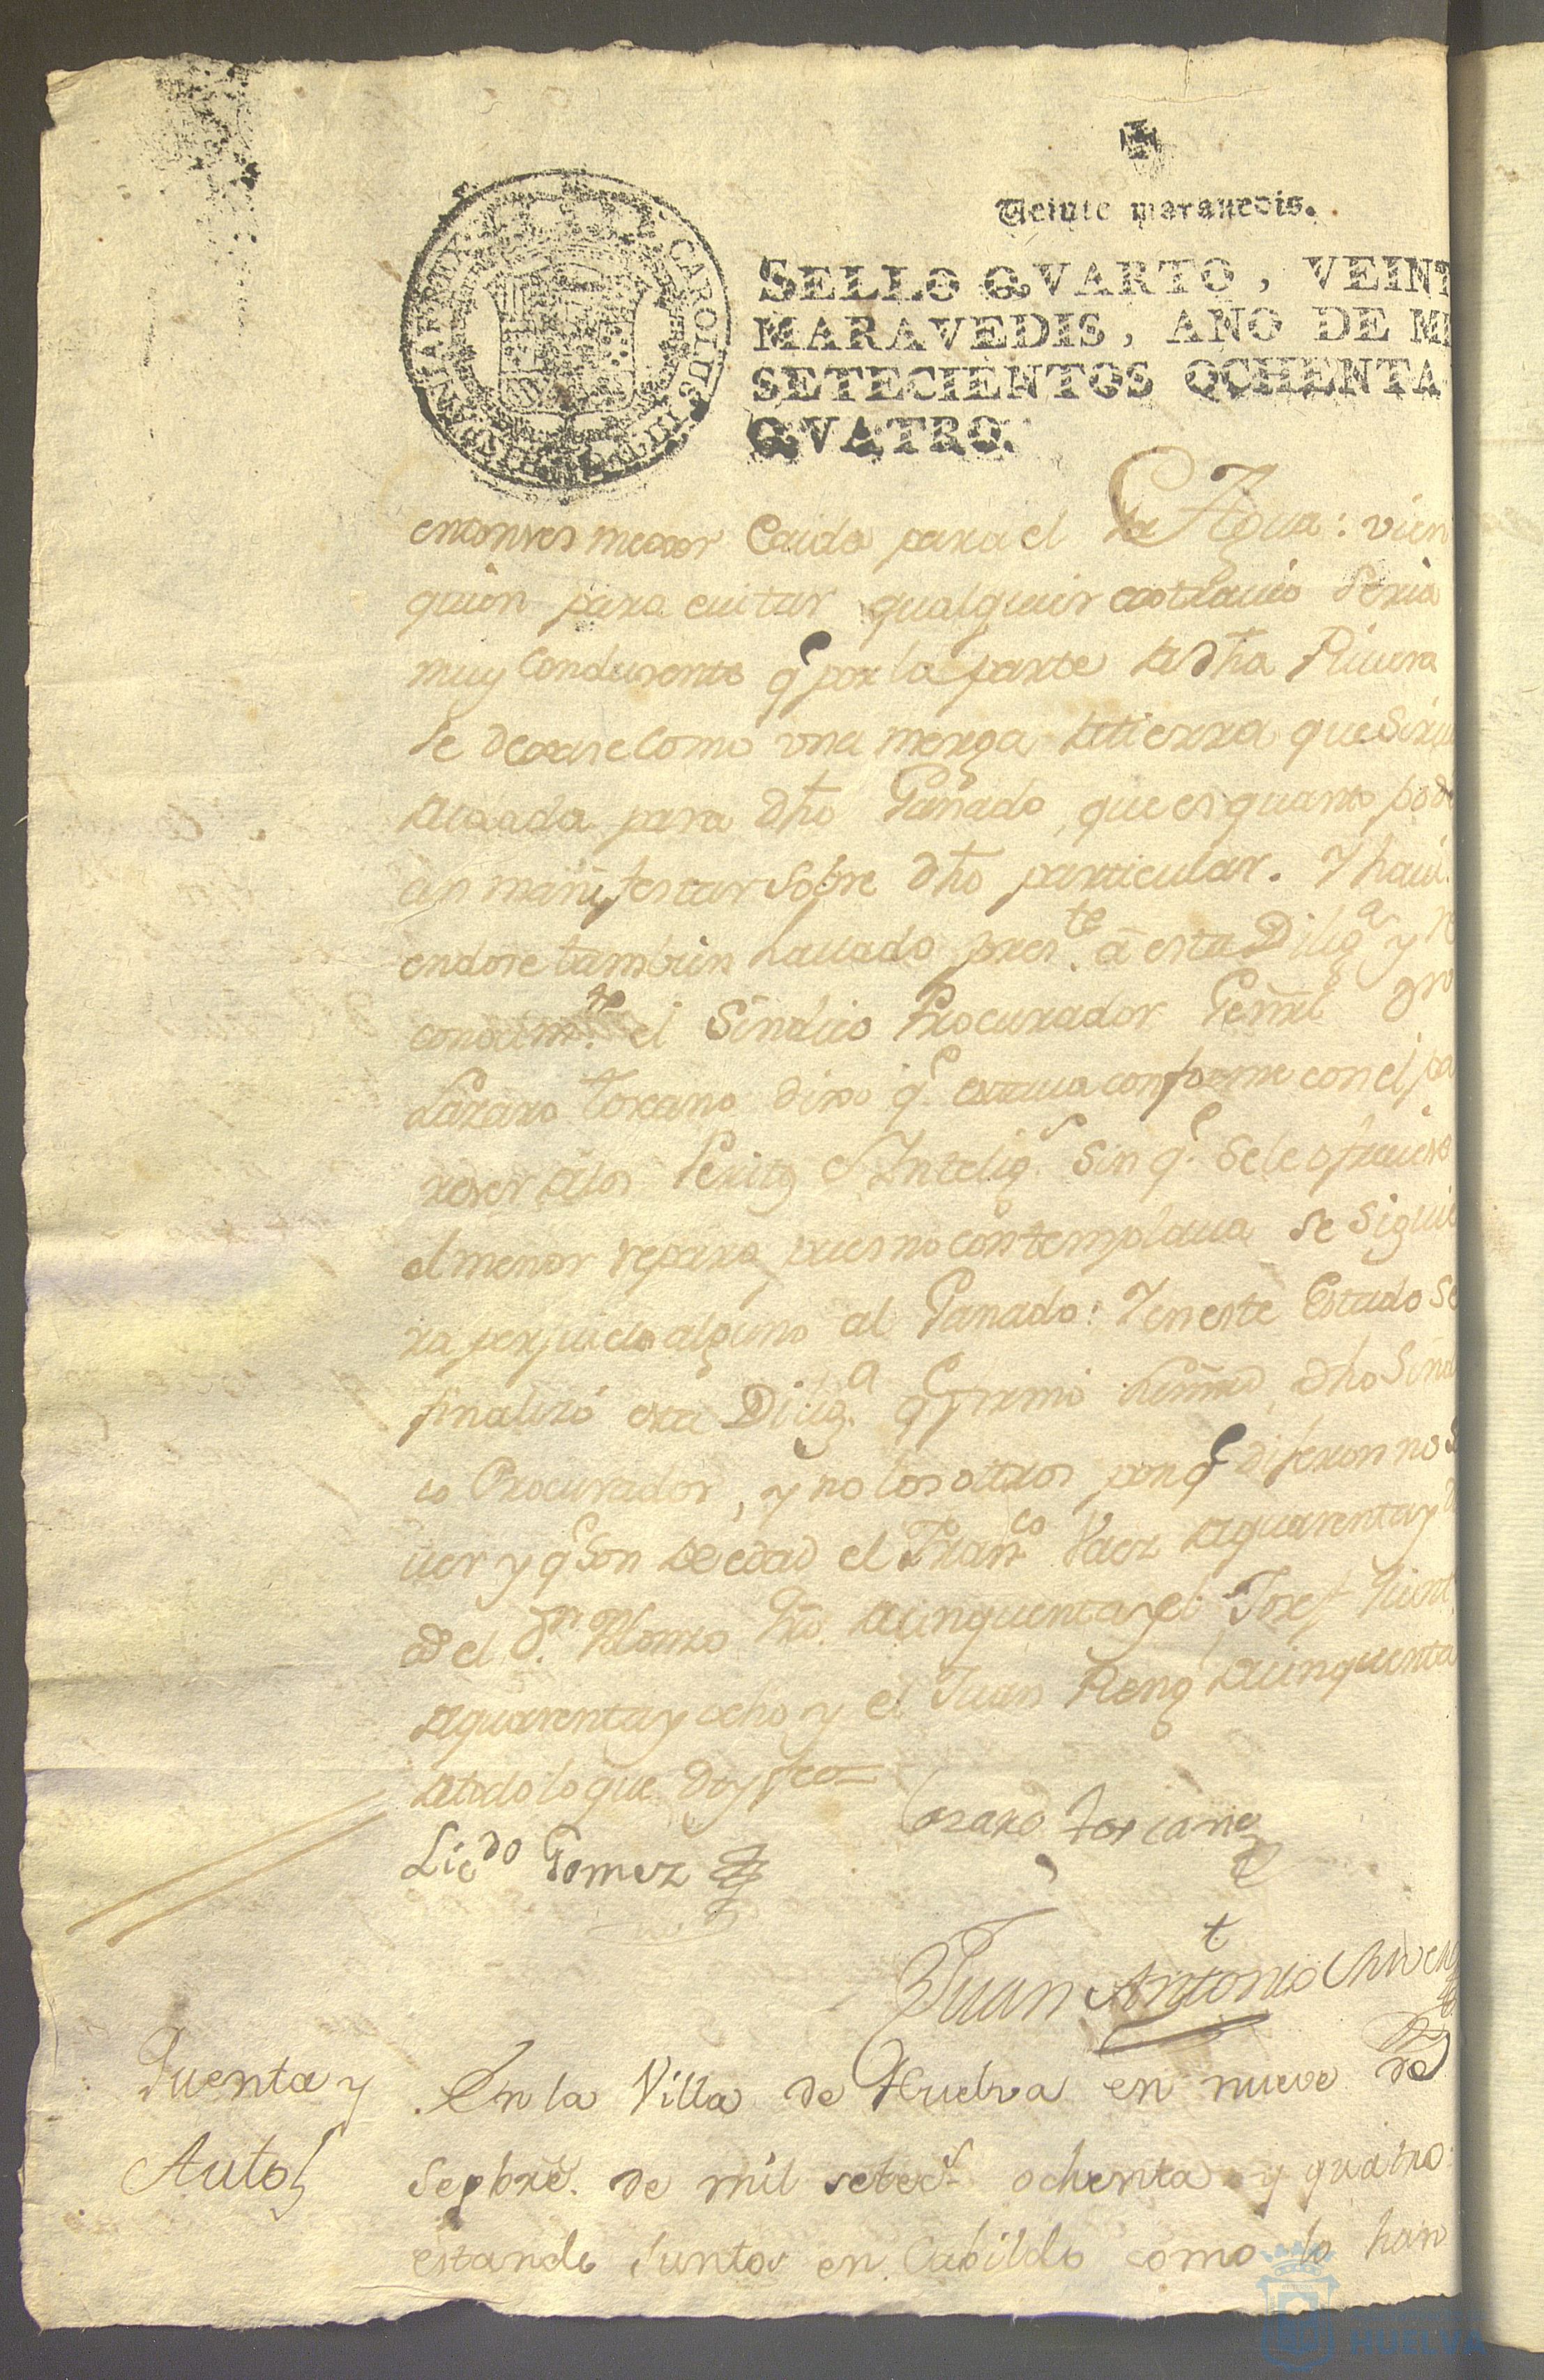 Veinte maravedis.
SELLO QVARTO, VEINT
MARAVEDIS, AÑO DE MI
SETECIENTOS OCHENTA
QVATRO.
CAROLUS III
entonses mexor Caida para el Agua: vien
quien para euitar qualquier extrauio seria
muy condusente q.e por la parte de dha Riuera
se dexase como una merga de tierra que sirua
para dho Ganado, que es quanto pod
an manifestar sobre dho particular. Y haui
endose tambien hallado pres.te a esta Dilig.a y re
conosim.to el Sindico Procurador Genral dn
Lazaro Toscano dixo q.e estaua conforme con el pa
reser de los Peritos e Intelig.s sin q.e se le ofreciese
el menor reparo, pues no contemplaua se siguie
ra perjuicio alguno al Ganado: Y en este Estado se
finalizó esta Dilig.a q.e firmó su mrd, dho Sindi
co Procurador, y no los otros porq.e dijeron no sa
uer y q.e son de edad el Fran.co Vaez de quarenta y
el d.n Alonso de cinquenta y el Josef
de quarenta y ocho y el Juan de cinquenta
de todo lo que doy fee=
Lic.do Gomez
Lazaro toscano
Juan Antonio
Quenta y
Autos
En la Villa de Huelva en nueve de
Sepbre. de mil setec.s ochenta y quatro
estando Juntos en Cabildo como lo han
HUELVA